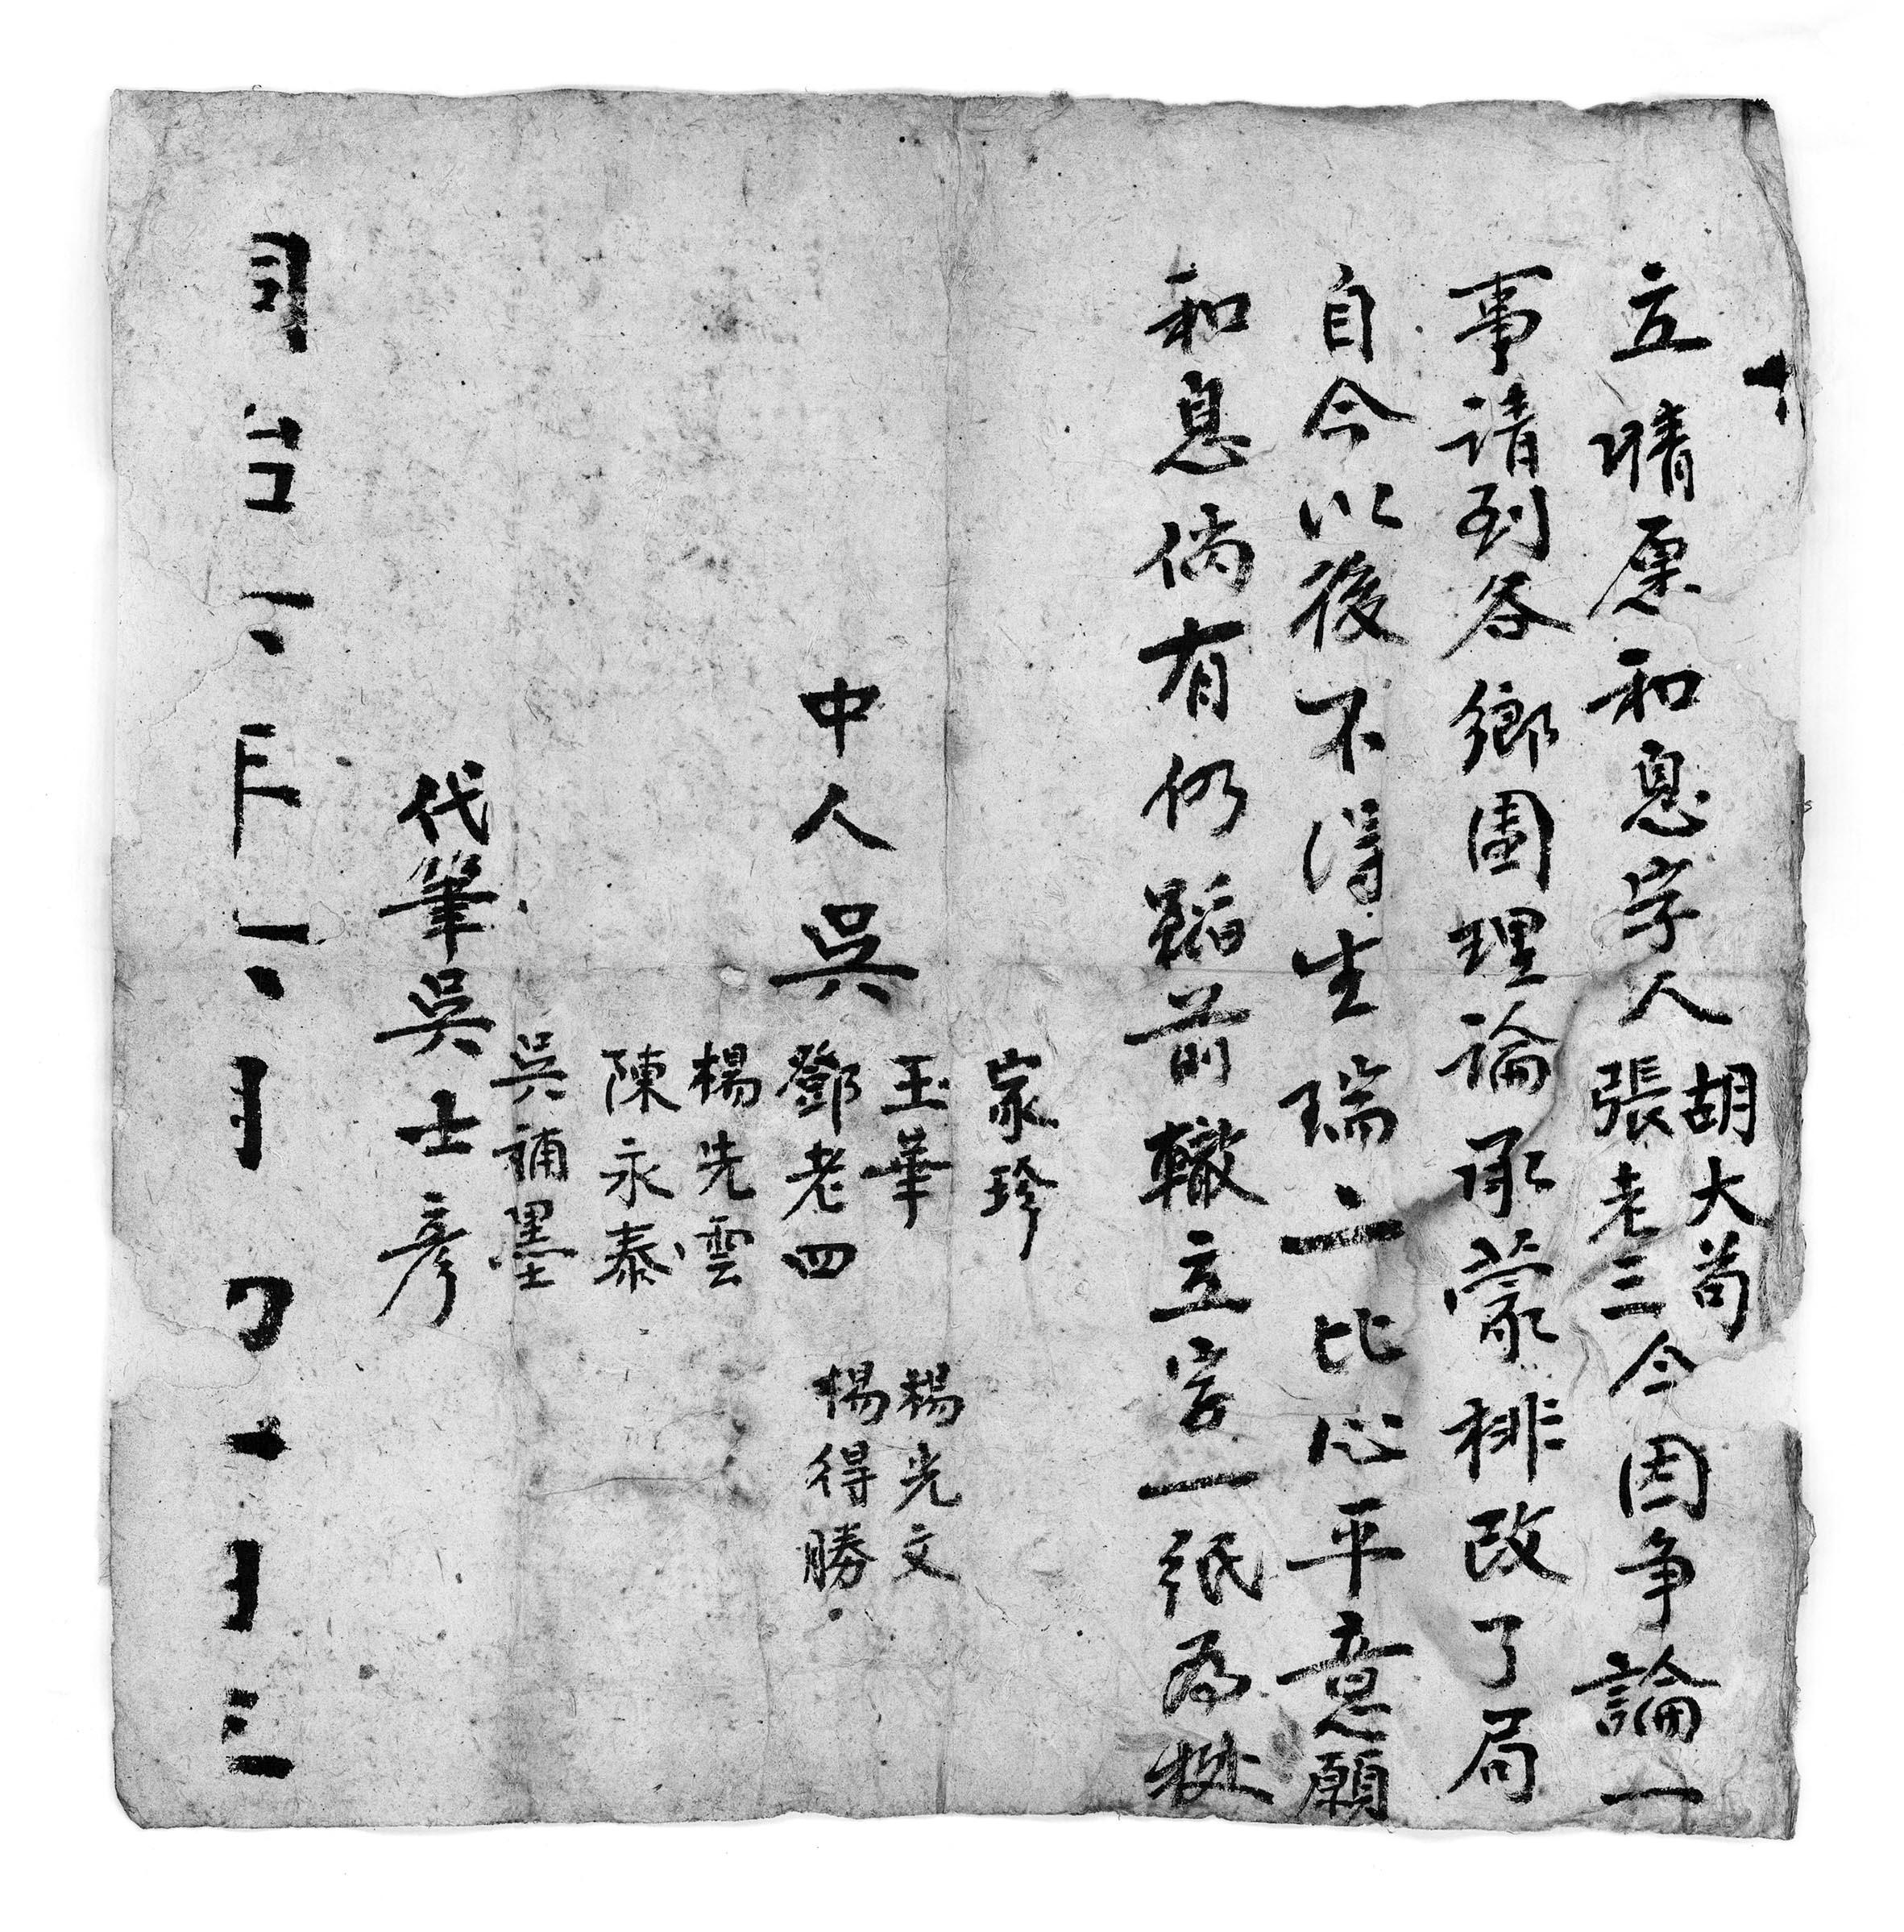 立情愿和息字人胡大苟張老三今因争論一
事請到各鄉團理論承蒙排改了局
自今以後不得生瑞二比心平意願
和息倘有仍蹈前轍立字一紙為㨿
家珍
中人吳玉華 楊光文
鄧老四 楊得勝
楊先雲
陳永泰
吳補墨
代筆吳士彥